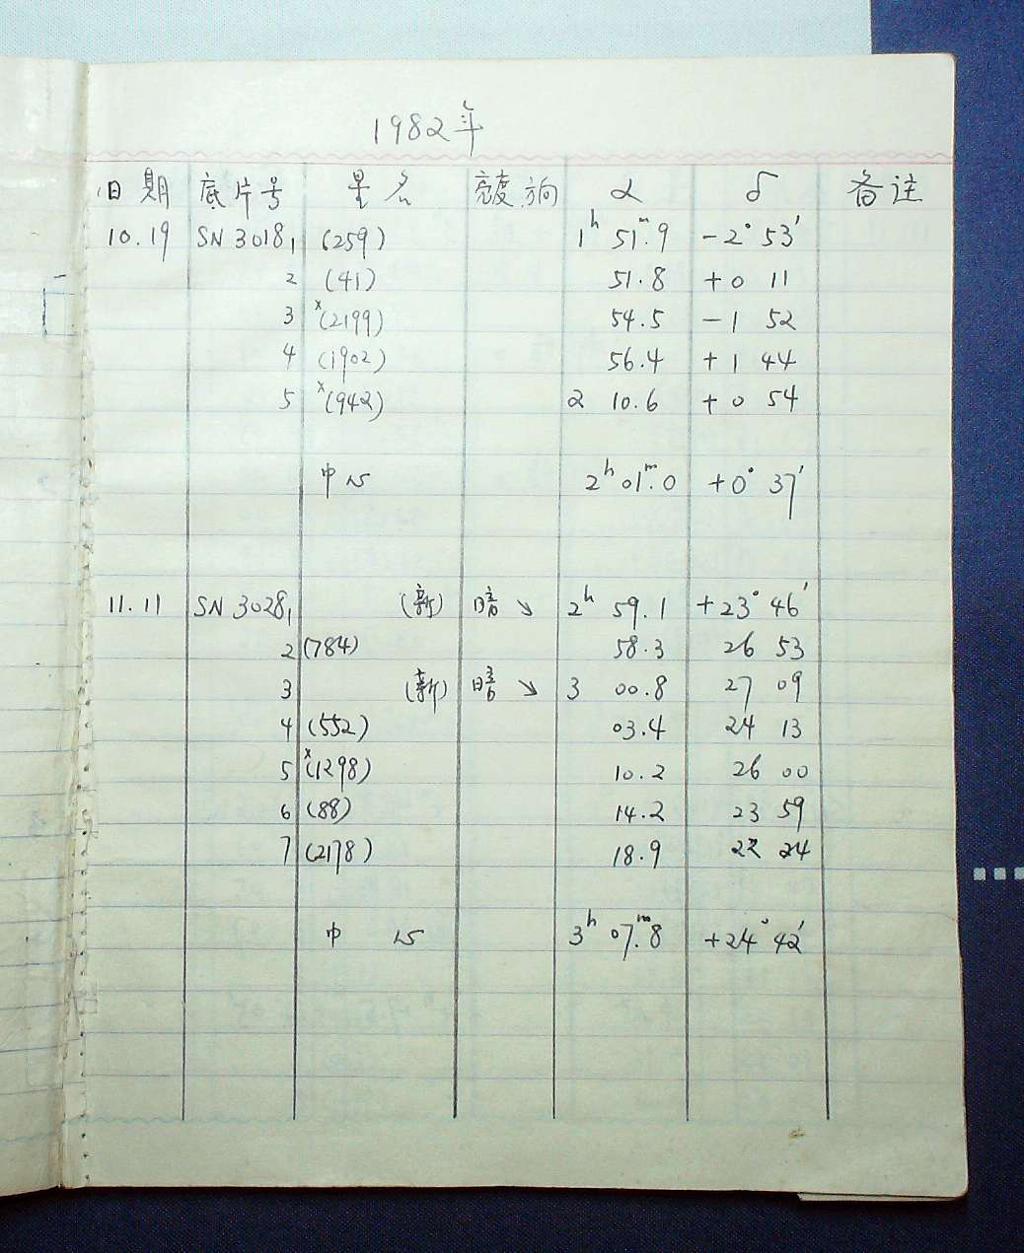 1982年
日期 底片号 星名 亮度 方向 α δ 备注
10.19 SN 3018₁ (259) 1ʰ 51ᵐ.9 -2° 53′
2 (41) 51.8 +0 11
3 ˣ(2199) 54.5 -1 52
4 (1902) 56.4 +1 44
5 ˣ(942) 2 10.6 +0 54
中心 2ʰ 01ᵐ.0 +0° 37′
11.11 SN 3028₁ (新) 暗 ↘ 2ʰ 59.1 +23° 46′
2 (784) 58.3 26 53
3 (新) 暗 ↘ 3 00.8 27 09
4 (552) 03.4 24 13
5 ˣ(1298) 10.2 26 00
6 (88) 14.2 23 59
7 (2178) 18.9 22 24
中心 3ʰ 07ᵐ.8 +24° 42′